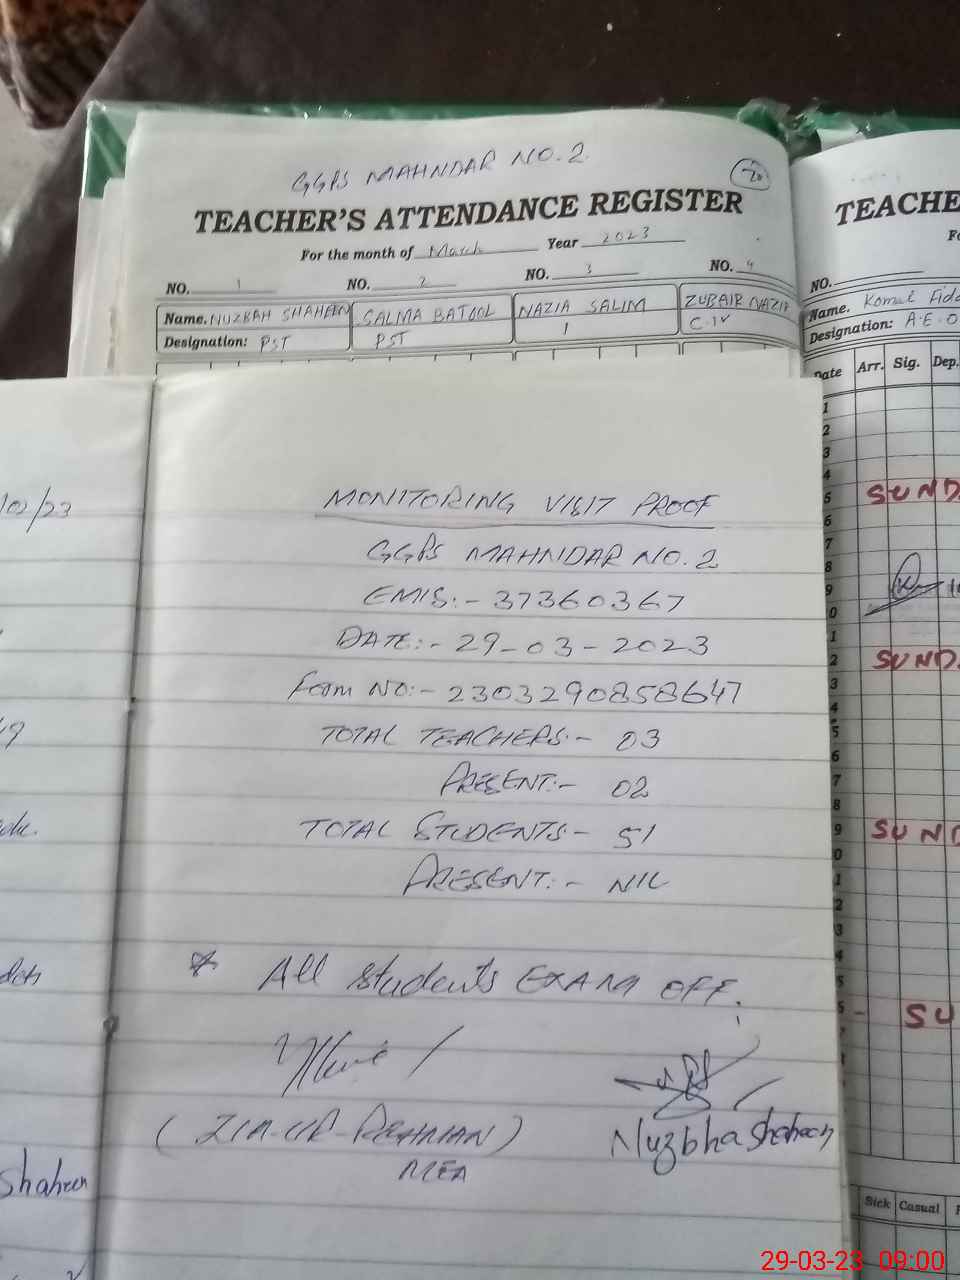 GGPS MAHNDAR NO. 2
TEACHER'S ATTENDANCE REGISTER
For the month of March Year 2023
NO. 1 NO. 2 NO. 3 NO. 4
Name. NUZBAH SHAHEEN SALMA BATOOL NAZIA SALIM ZUBAIR NAZIR
Designation: PST PST C.IV
TEACHE
NO.
Name. Komal Fida
Designation: A.E.O
Date Arr. Sig. Dep.
1
2
3
4
5 SUND
6
7
8
9
0
1
2 SUND
3
4
5
6
7
8
9 SUND
0
1
2
3
4
5
6 SU
Sick Casual
/02/23
Shaheen
MONITORING VISIT PROOF
GGPS MAHNDAR NO. 2
EMIS:- 37360367
DATE:- 29-03-2023
Form NO:- 2303290858647
TOTAL TEACHERS:- 03
PRESENT:- 02
TOTAL STUDENTS:- 51
PRESENT:- NIL
* All students EXAM OFF.
(ZIA-UR-REHMAN)
MEA
Nuzbha Shaheen
29-03-23 09:00